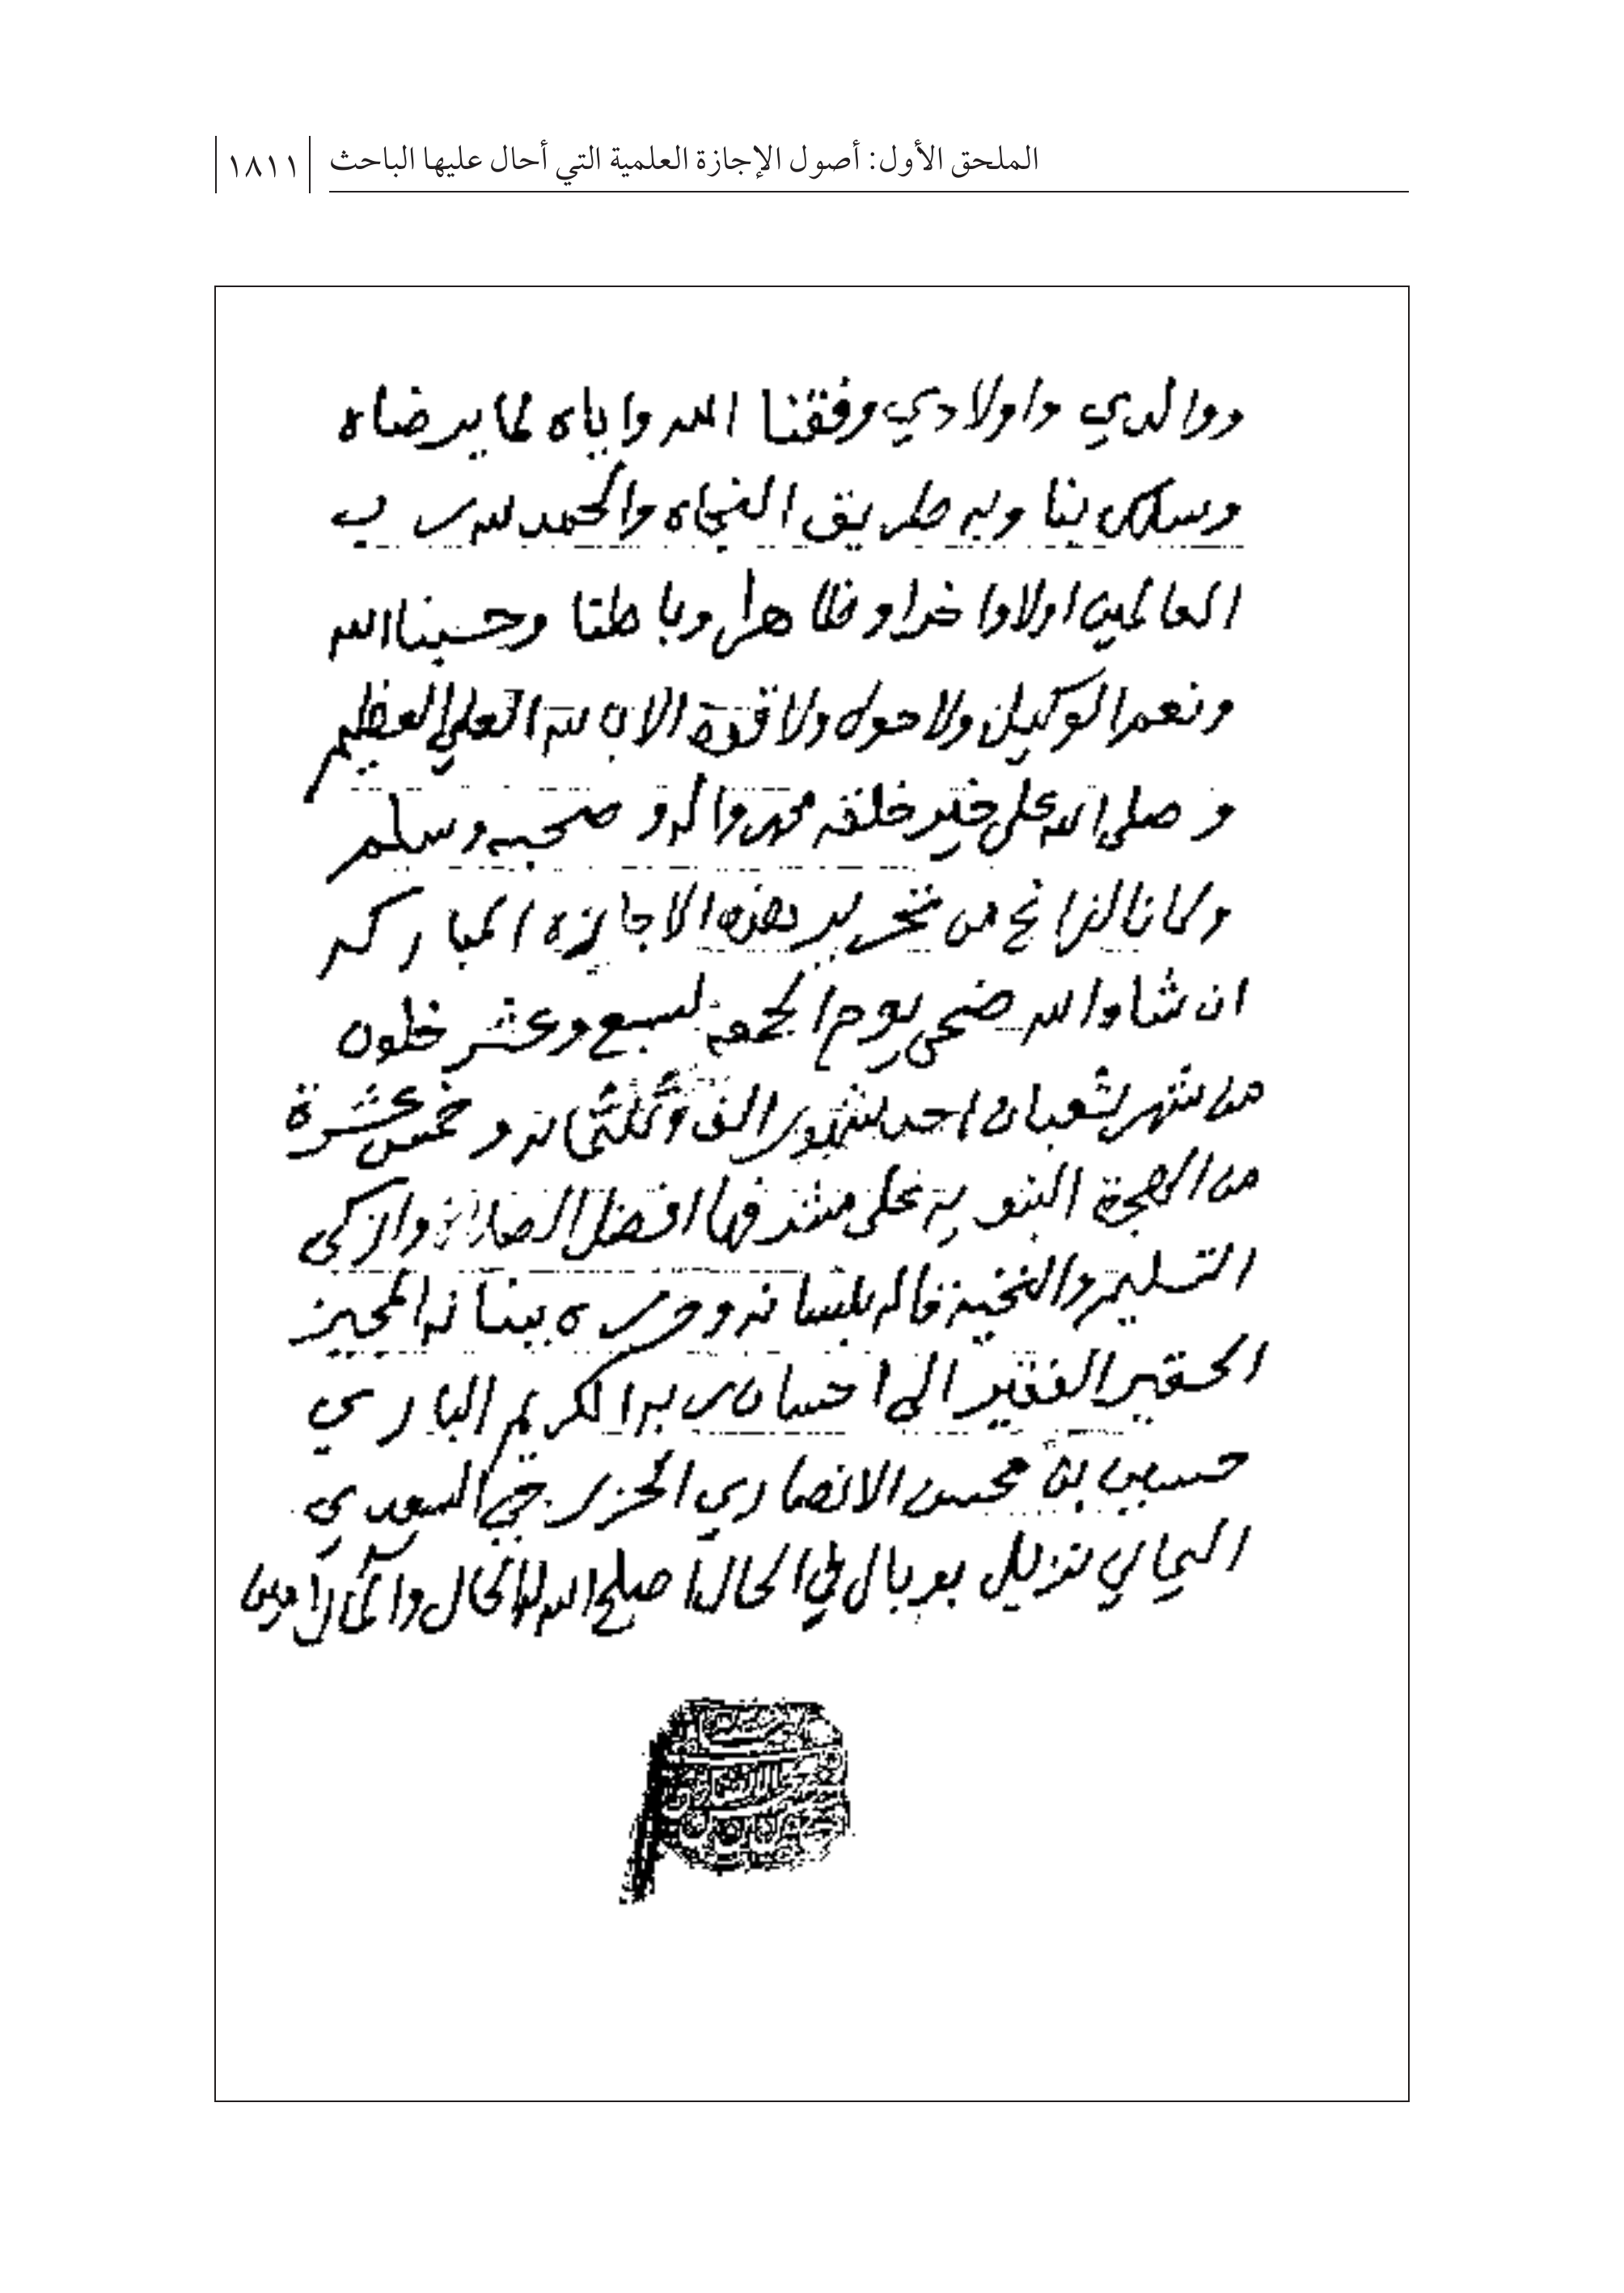 الملحق الأول: أصول الإجازة العلمية التي أحال عليها الباحث ١٨١١
ووالدي واولادي وفقنا الله واياه لما يرضاه
وسلك بنا وبه طريق النجاه والحمد لله رب
العالمين اولا واخرا وظاهرا وباطنا وحسبنا الله
ونعم الوكيل ولا حول ولا قوة الا بالله العلي العظيم
وصلى الله على خير خلقه محمد واله وصحبه وسلم
وكان الفراغ من تحرير هذه الاجازه المباركه
ان شاء الله ضحى يوم الجمعه لسبع وعشر خلون
من شهر شعبان احد شهور الف وثلثمائه وخمس عشرة
من الهجرة النبويه على مشرفها افضل الصلاة وازكى
التسليم والتحية قاله بلسانه وحرره ببنانه المجيز
الحقير الفقير الى احسان ربه الكريم الباري
حسين بن محسن الانصاري الخزرجي السعدي
اليماني نزيل بهوبال في الحال اصلح الله له الحال والمآل امين